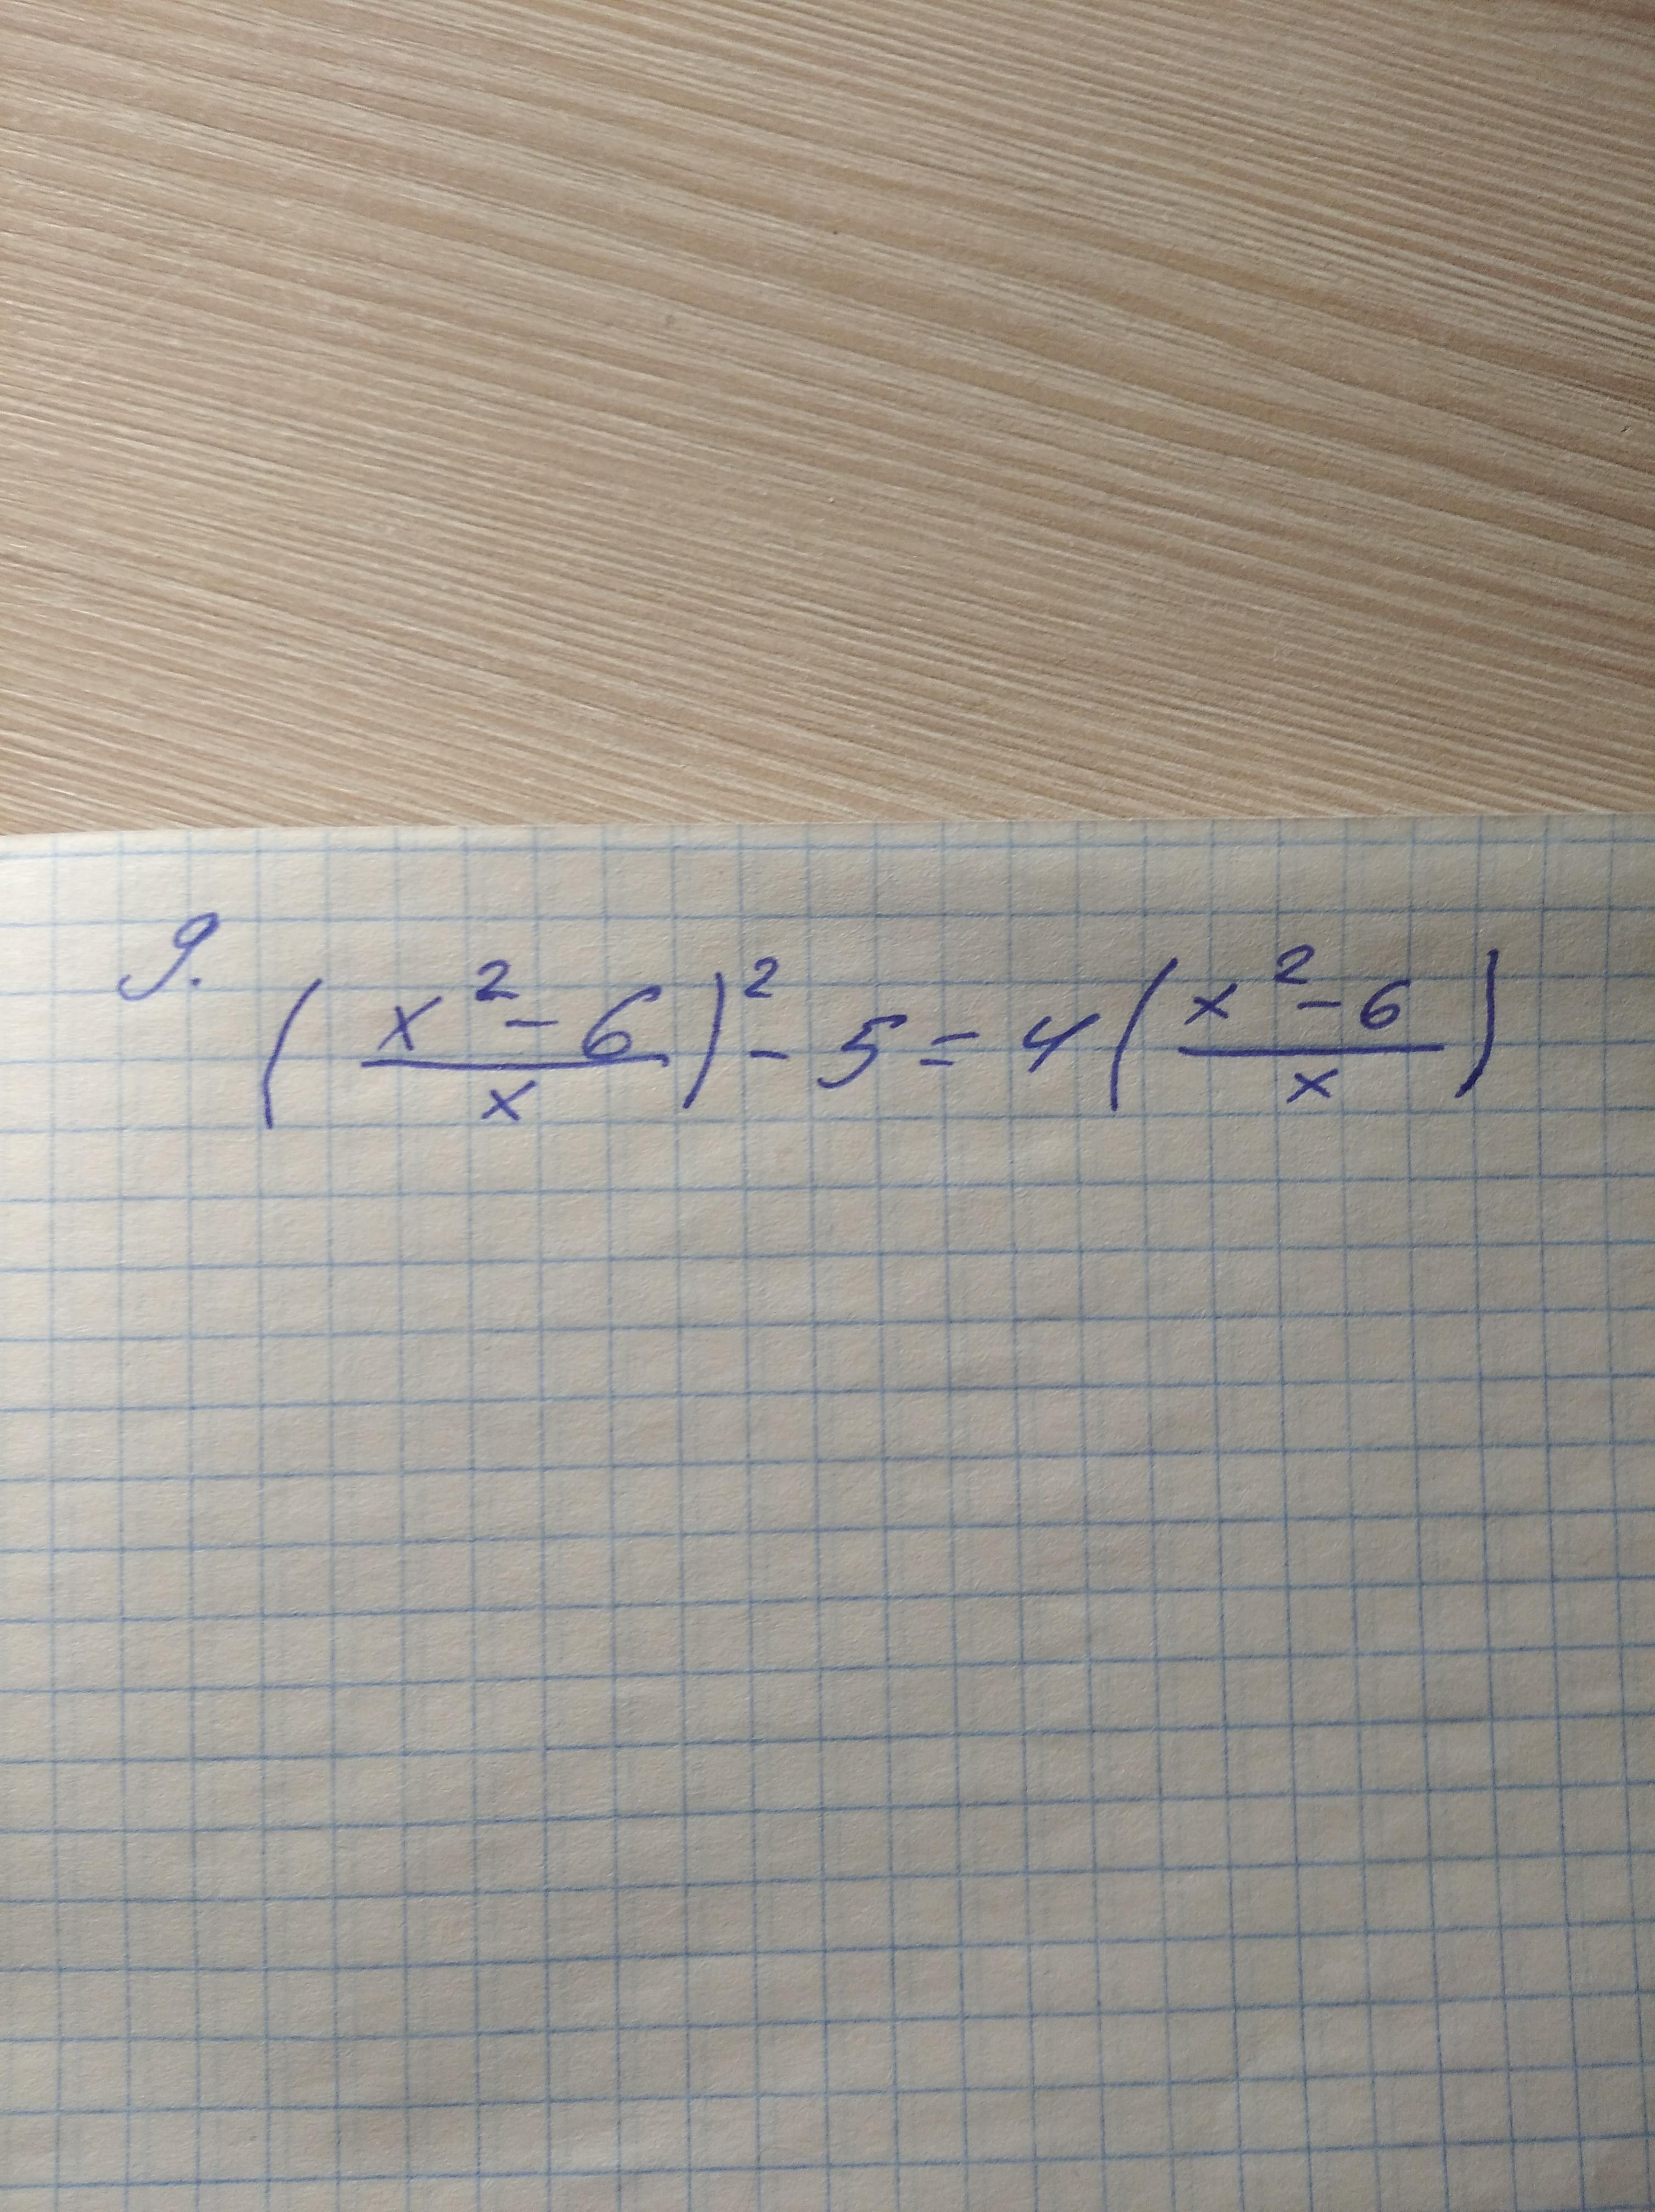 9. (x²-6/x)² - 5 = 4(x²-6/x)